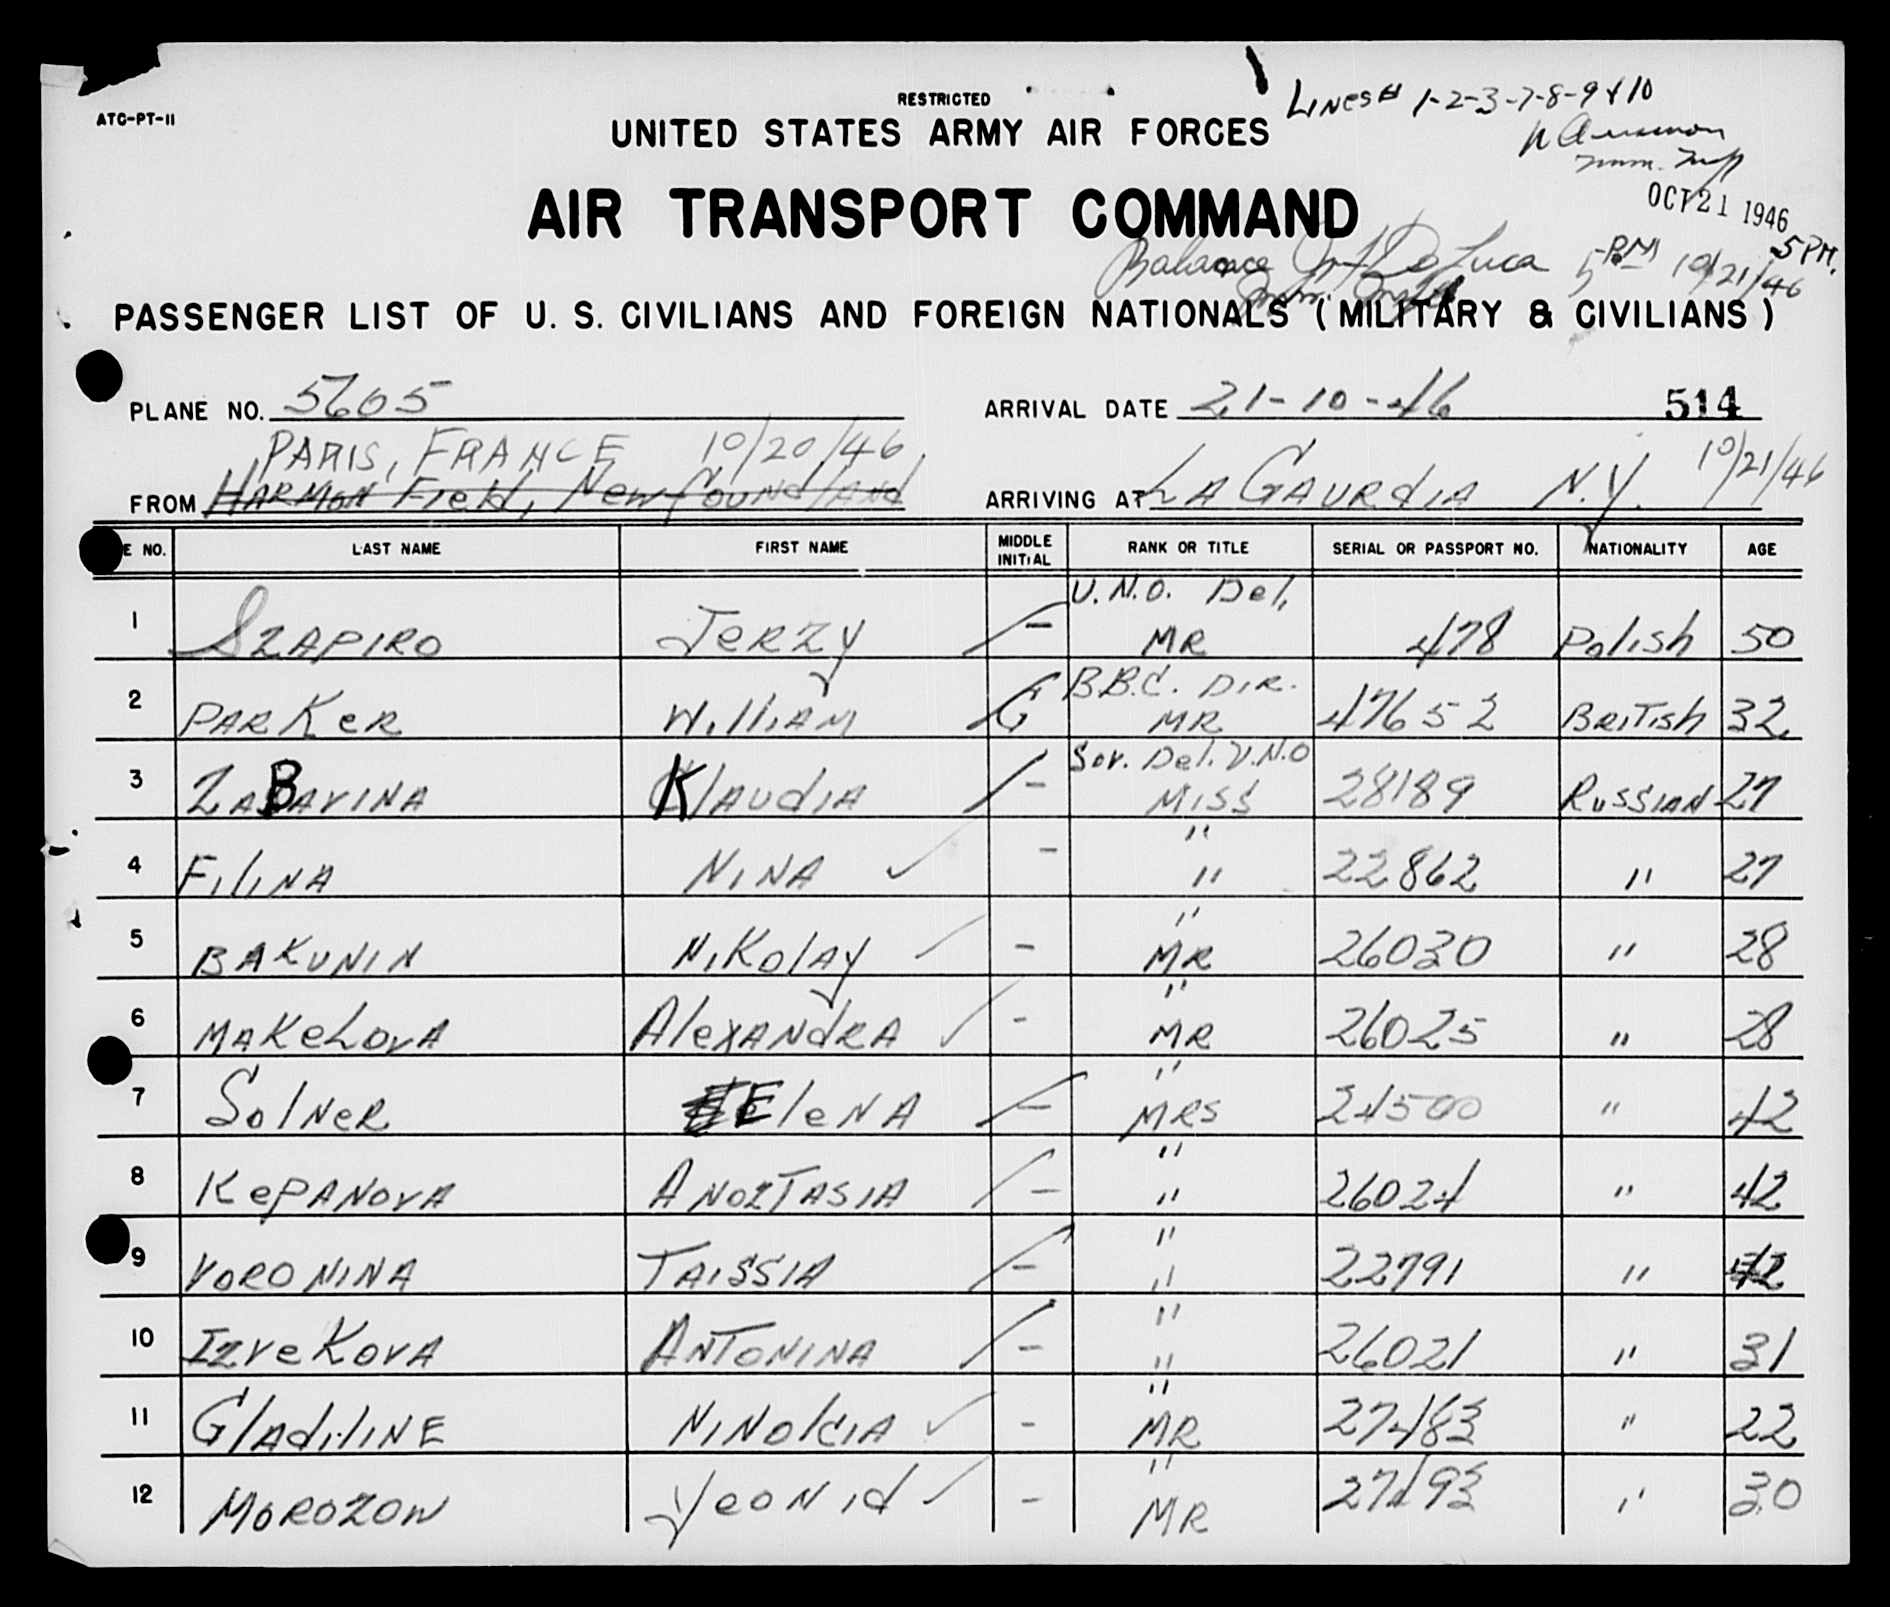 RESTRICTED
ATC-PT-11
LINES# 1-2-3-7-8-9 & 10
UNITED STATES ARMY AIR FORCES
OCT 21 1946
AIR TRANSPORT COMMAND
5 PM.
Balance DeLuca 5 PM 10/21/46
PASSENGER LIST OF U. S. CIVILIANS AND FOREIGN NATIONALS (MILITARY & CIVILIANS)
PLANE NO. 5605 ARRIVAL DATE 21-10-46 514
PARIS, FRANCE 10/20/46
FROM HARMON Field, Newfoundland ARRIVING AT LA GAURdIA N.Y. 10/21/46
E NO. LAST NAME FIRST NAME MIDDLE INITIAL RANK OR TITLE SERIAL OR PASSPORT NO. NATIONALITY AGE
1 SZAPIRO JERZY - U.N.O. Del. MR 478 Polish 50
2 PARKER WilliAM G B.B.C. DIR. MR 47652 BRITish 32
3 ZABAVINA KlAUdIA - Sov. Del. U.N.O MISS 28189 RUSSIAN 27
4 FilINA NINA ✓ - " " 22862 " 27
5 BAKUNIN NiKolAy ✓ - " MR 26030 " 28
6 MAKeLovA AlexANdRA ✓ - " MR 26025 " 28
7 SolNeR EleNA - " MRS 24500 " 42
8 KePANovA ANOZTASIA - " " 26024 " 42
9 VORONINA TAISSIA - " " 22791 " 42
10 IzveKovA ANTONINA - " " 26021 " 31
11 GlAdiliNE NINolcIA ✓ - " MR 27483 " 22
12 MOROZOW YeoNid ✓ - " MR 27493 " 30